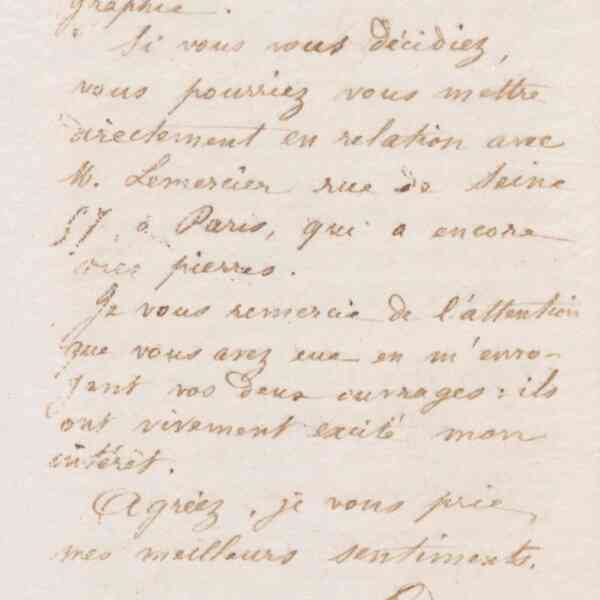 graphie.
Si vous vous décidiez,
vous pourriez vous mettre
directement en relation avec
M. Lemercier rue de Seine
57, à Paris, qui a encore
mes pierres.
Je vous remercie de l'attention
que vous avez eue en m'envo-
yant vos deux ouvrages : ils
ont vivement excité mon
intérêt.
Agréez, je vous prie,
mes meilleurs sentiments.